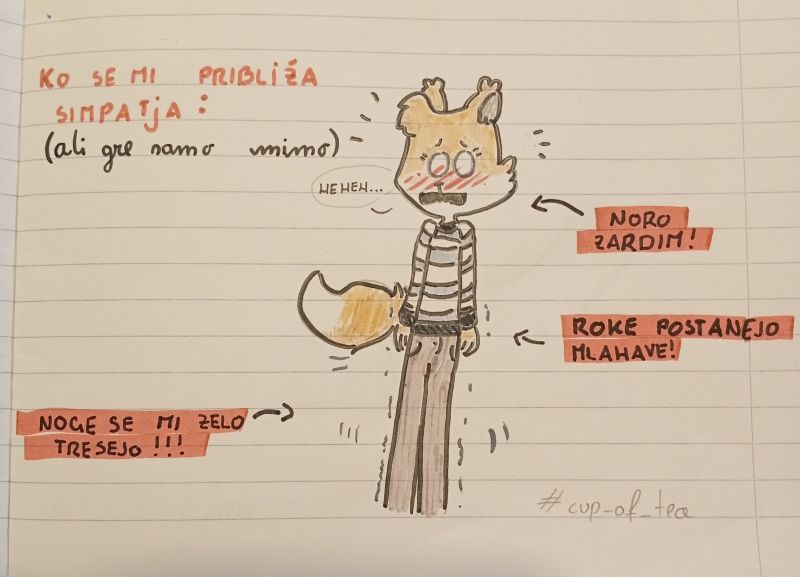 KO SE MI PRIBLIŽA
SIMPATjA :
(ali gre samo mimo)
HEHEH...
NORO
ZARDIM!
ROKE POSTANEJO
MLAHAVE!
NOGE SE MI ZELO
TRESEJO !!!
#cup_of_tea